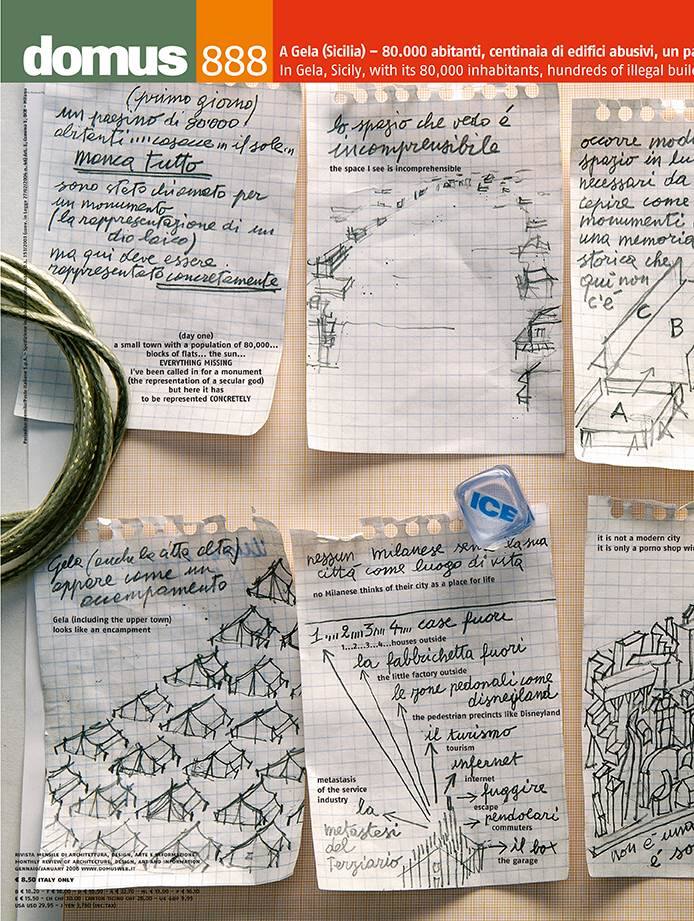 domus 888
A Gela (Sicilia) – 80.000 abitanti, centinaia di edifici abusivi, un
In Gela, Sicily, with its 80,000 inhabitants, hundreds of illegal
(primo giorno)
un paesino di 80'000
abitanti .... casacce .... il sole ...
manca tutto
sono stato chiamato per
un monumento
(la rappresentazione di un
dio laico)
ma qui deve essere
rappresentato concretamente
(day one)
a small town with a population of 80,000...
blocks of flats... the sun...
EVERYTHING MISSING
i've been called in for a monument
(the representation of a secular god)
but here it has
to be represented CONCRETELY
lo spazio che vedo é
incomprensibile
the space I see is incomprehensible
occorre
spazio in
necessari da
capire come
monumenti
una memoria
storica che
qui non
c'é
C
B
A
A
A
ICE
Gela (anche la città alta)
appare come un
accampamento
Gela (including the upper town)
looks like an encampment
nessun milanese sente la sua
città come luogo di vita
no Milanese thinks of their city as a place for life
1....2....3....4.... case fuori
1...2...3...4...houses outside
la fabbrichetta fuori
the little factory outside
le zone pedonali come
disneyland
the pedestrian precincts like Disneyland
il turismo
tourism
internet
internet
fuggire
escape
pendolari
commuters
il box
the garage
metastasis
of the service
industry
la
metastasi
del
Terziario
it is not a modern city
it is only a porno shop
non é una
é
RIVISTA MENSILE DI ARCHITETTURA, DESIGN, ARTE E INFORMAZIONE
MONTHLY REVIEW OF ARCHITECTURE, DESIGN, ART AND INFORMATION
GENNAIO/JANUARY 2006 WWW.DOMUSWEB.IT
€ 8.50 ITALY ONLY